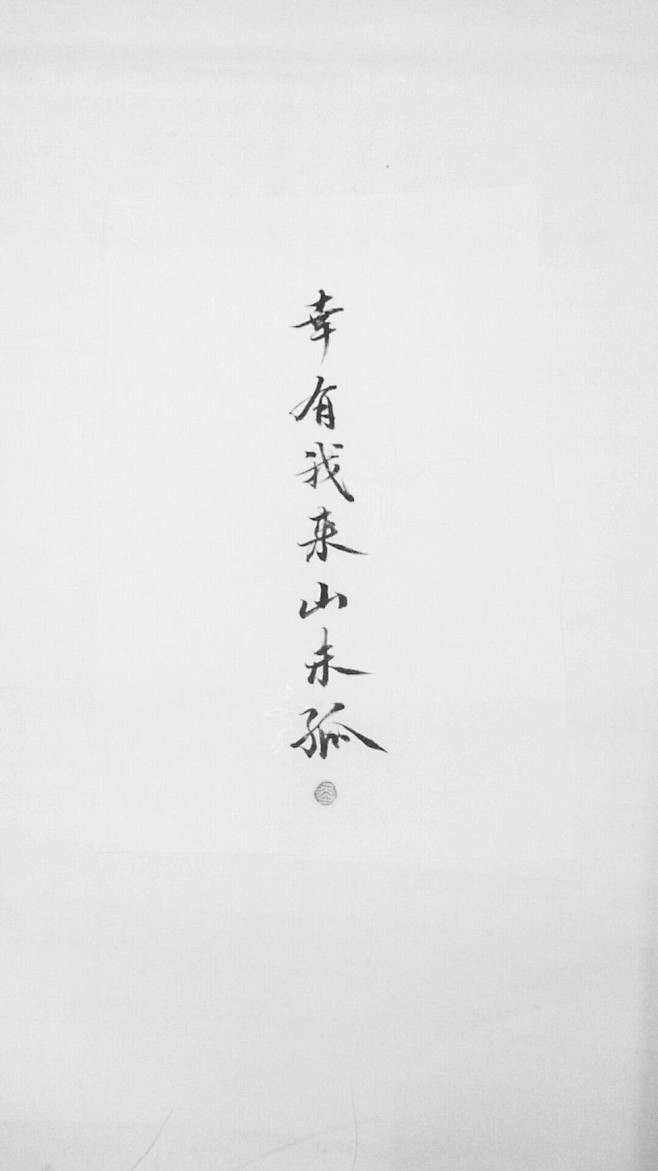 幸有我来山未孤